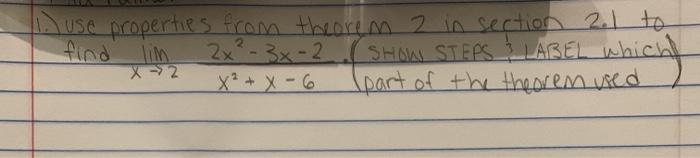 1.) use properties from theorem 2 in section 2.1 to
find lim x→2 (2x² - 3x - 2)/(x² + x - 6). (SHOW STEPS & LABEL which
part of the theorem used)